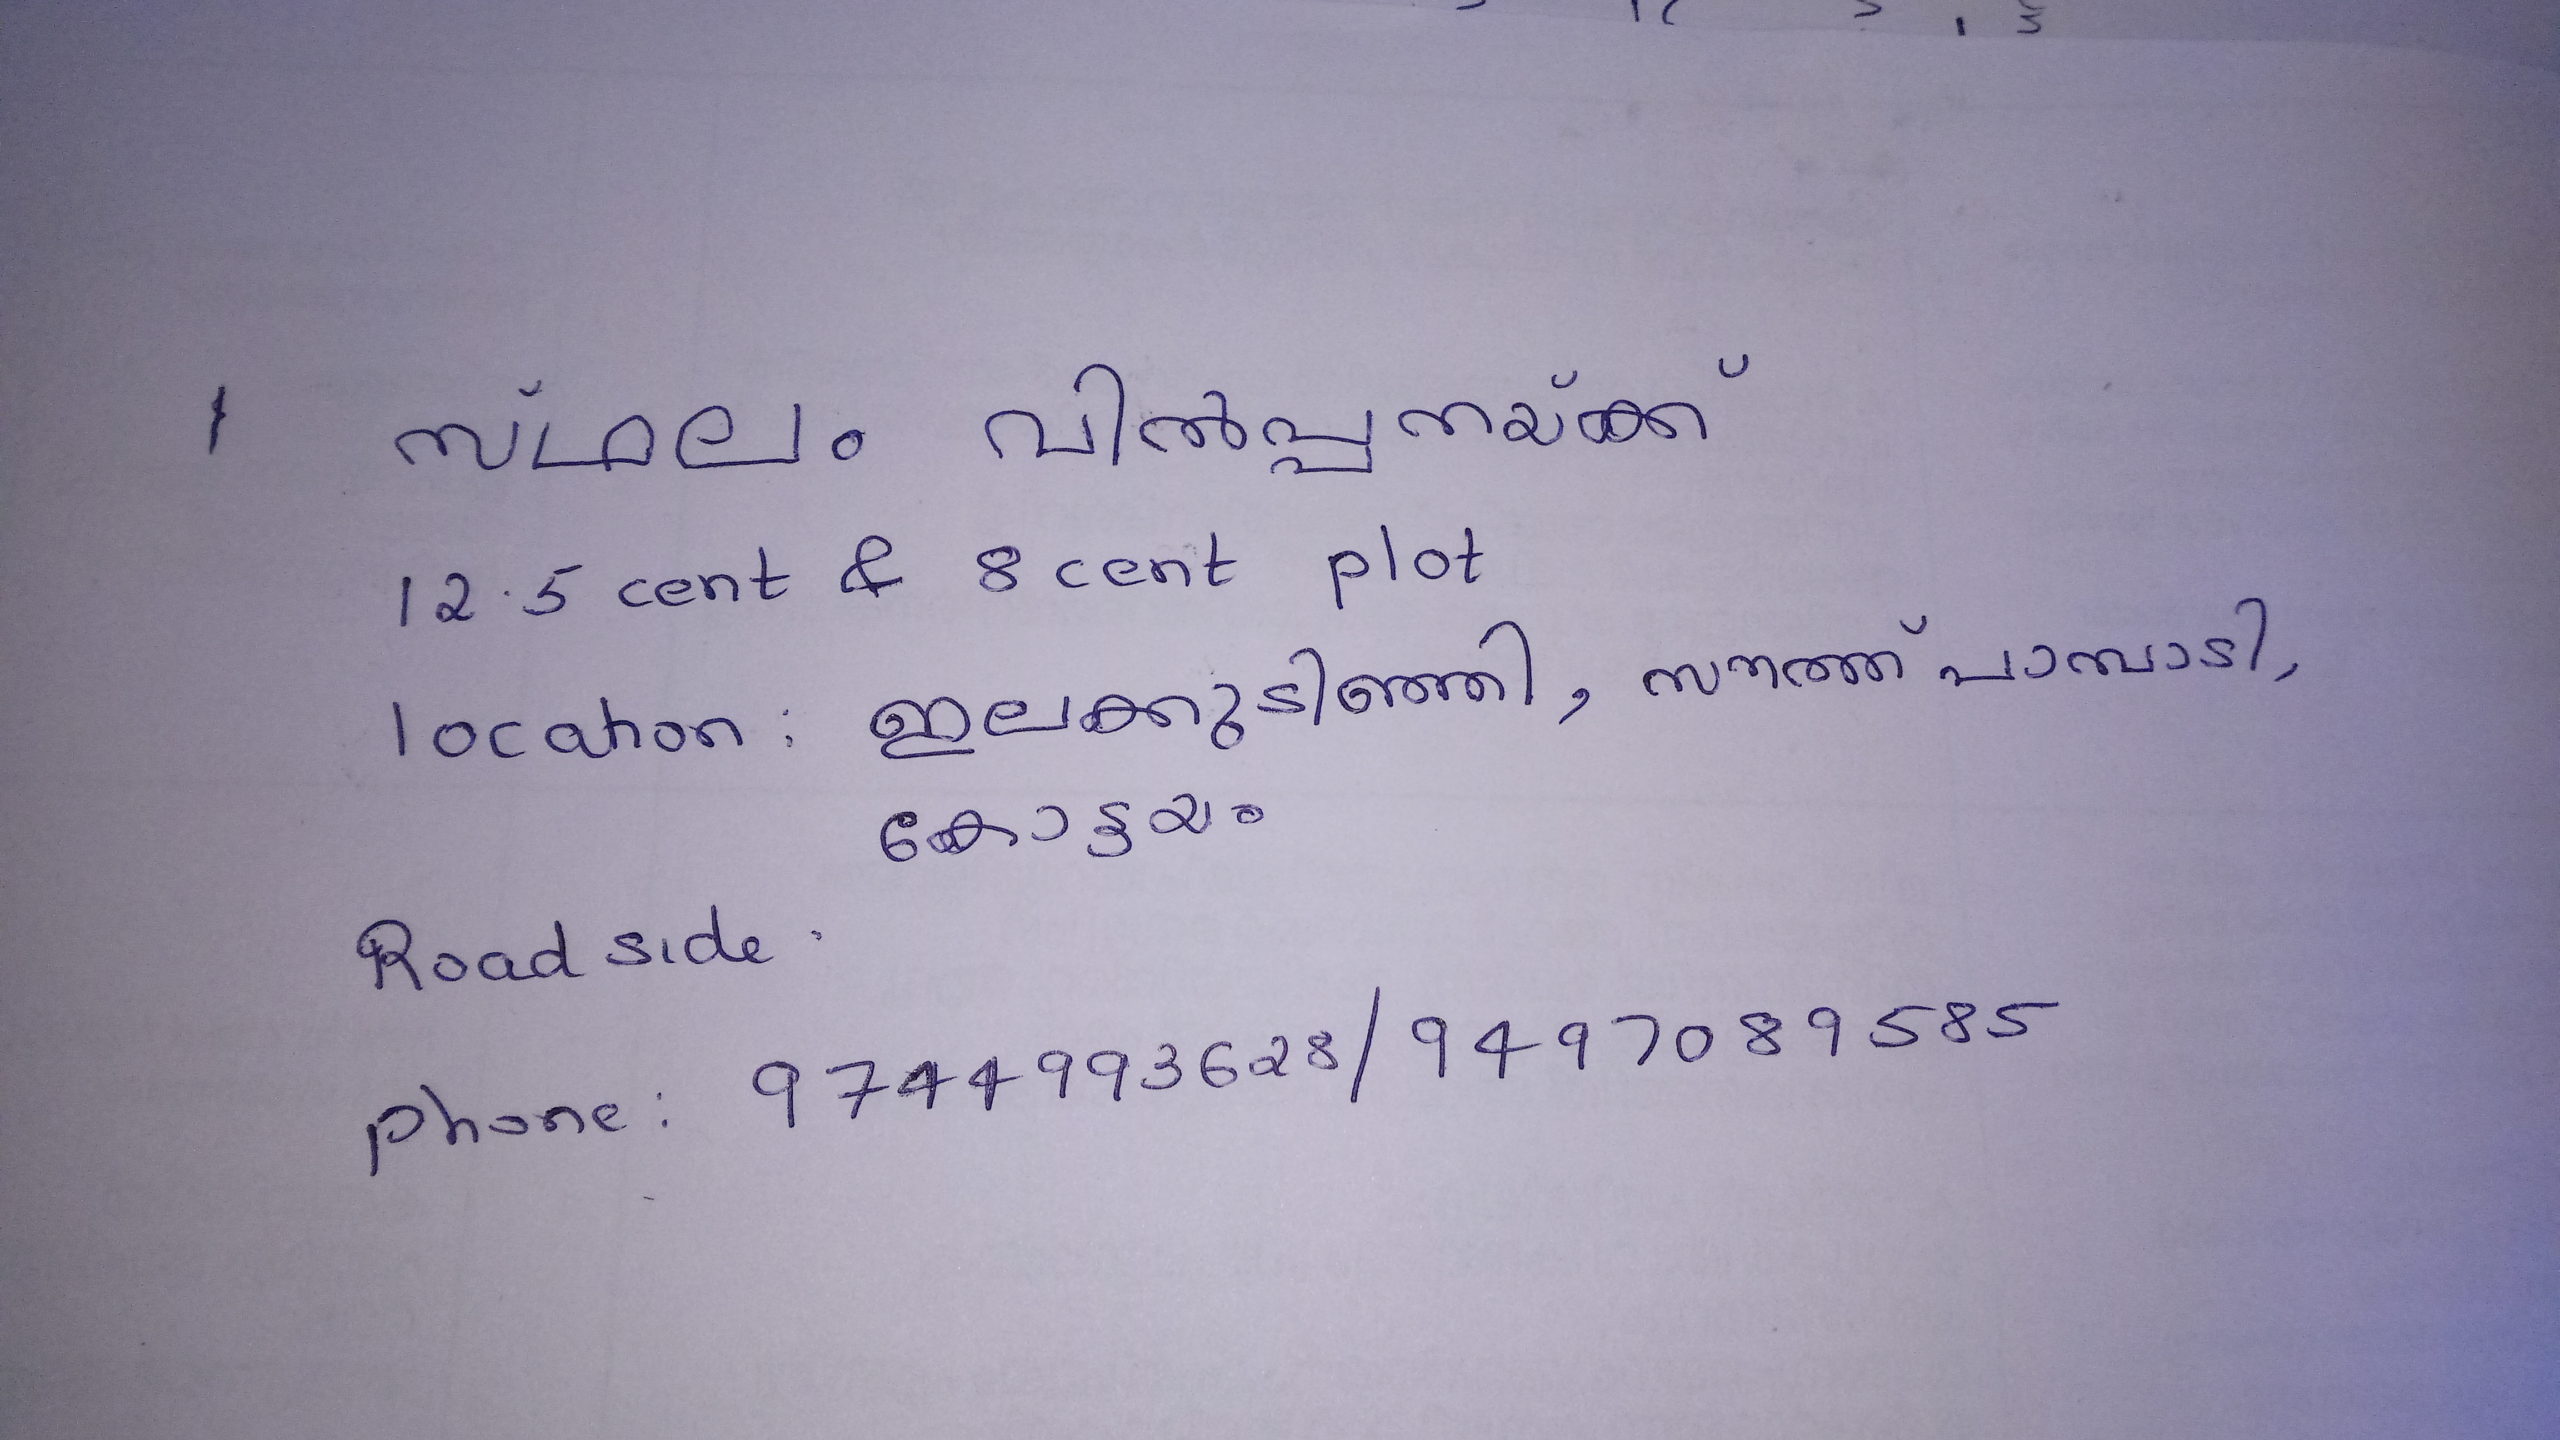 1 സ്ഥലം വിൽപ്പനയ്ക്ക്
12.5 cent & 8 cent plot
location: ഇലക്കുടിഞ്ഞി, സൗത്ത് പാമ്പാടി,
കോട്ടയം
Road side.
phone: 9744993628/9497089585